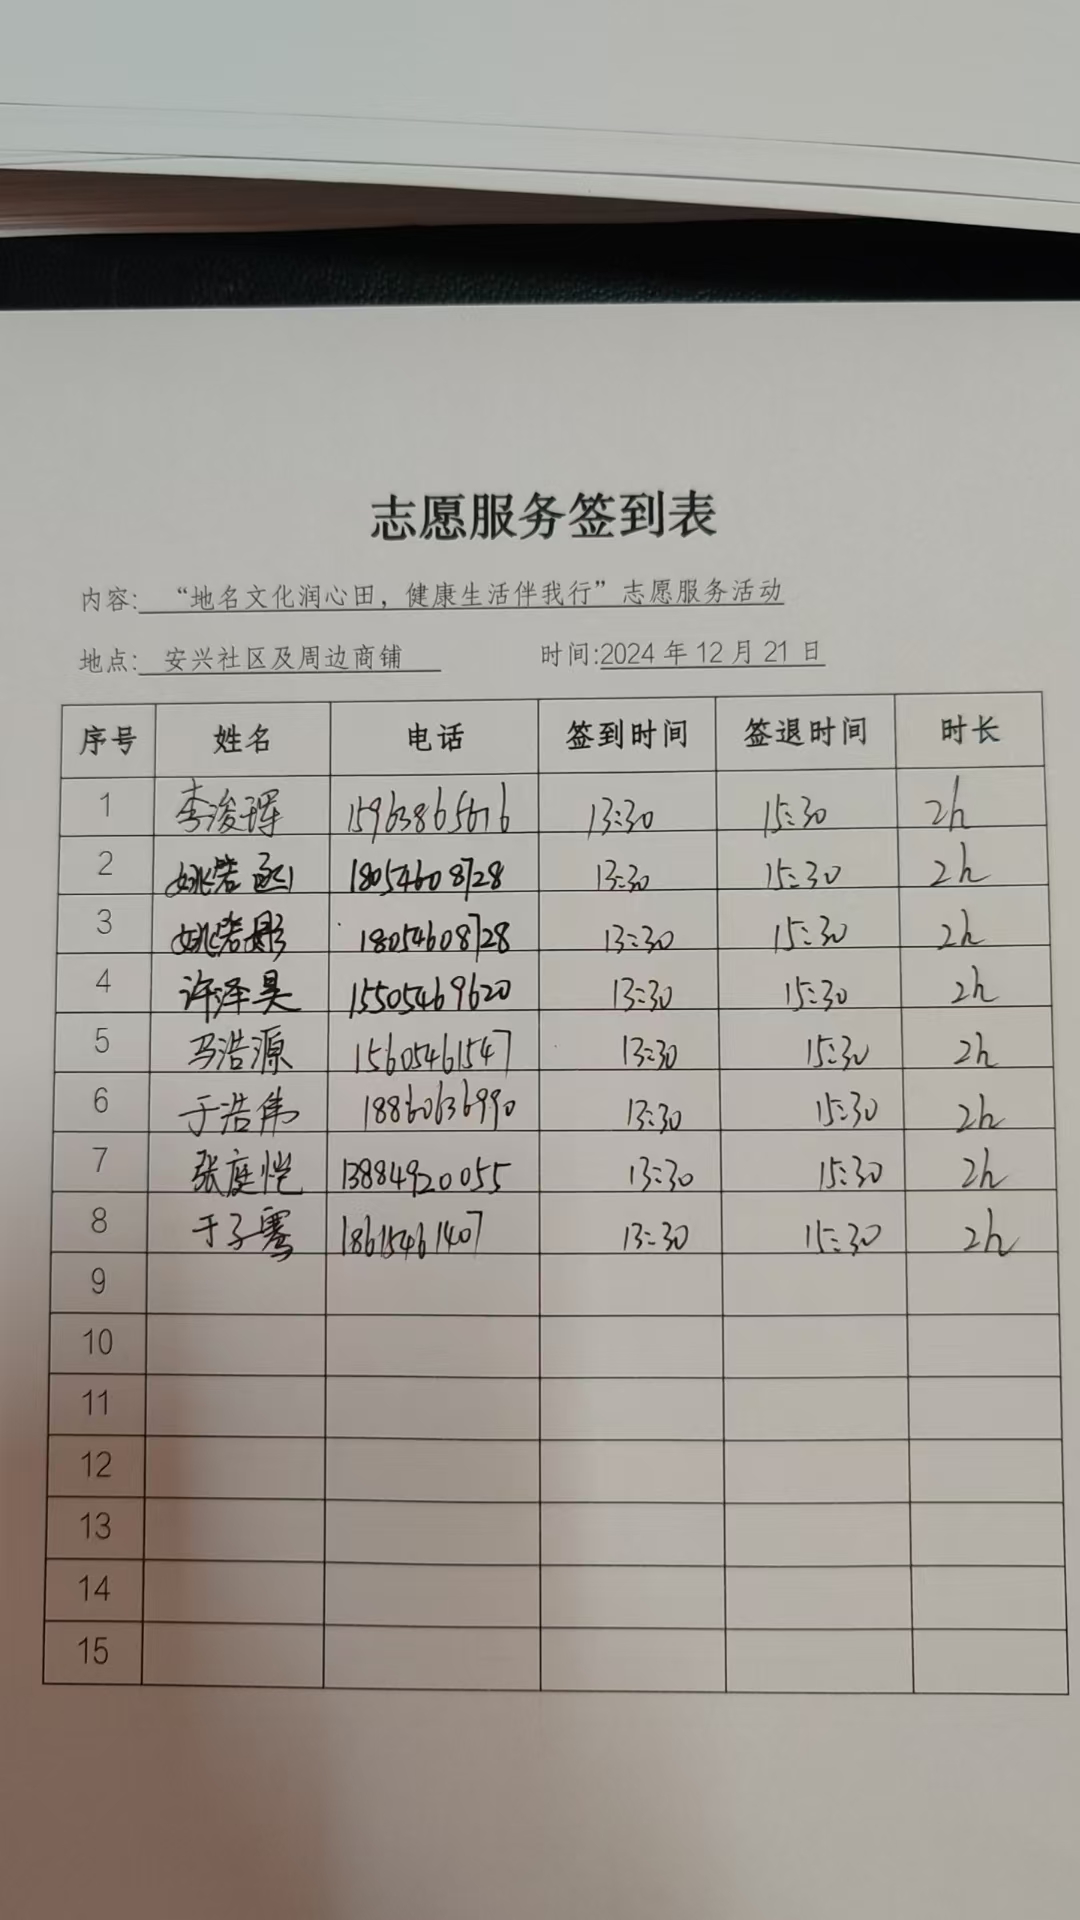 志愿服务签到表
内容: “地名文化润心田，健康生活伴我行”志愿服务活动
地点: 安兴社区及周边商铺 时间:2024年12月21日
序号 姓名 电话 签到时间 签退时间 时长
1 李浚珲 15963865676 13:30 15:30 2h
2 姚若丞 18054608728 13:30 15:30 2h
3 姚若彤 18054608728 13:30 15:30 2h
4 许泽昊 15505469620 13:30 15:30 2h
5 马浩源 15605461547 13:30 15:30 2h
6 于浩伟 18860636990 13:30 15:30 2h
7 张庭恺 13884920055 13:30 15:30 2h
8 于子骞 18615461407 13:30 15:30 2h
9
10
11
12
13
14
15